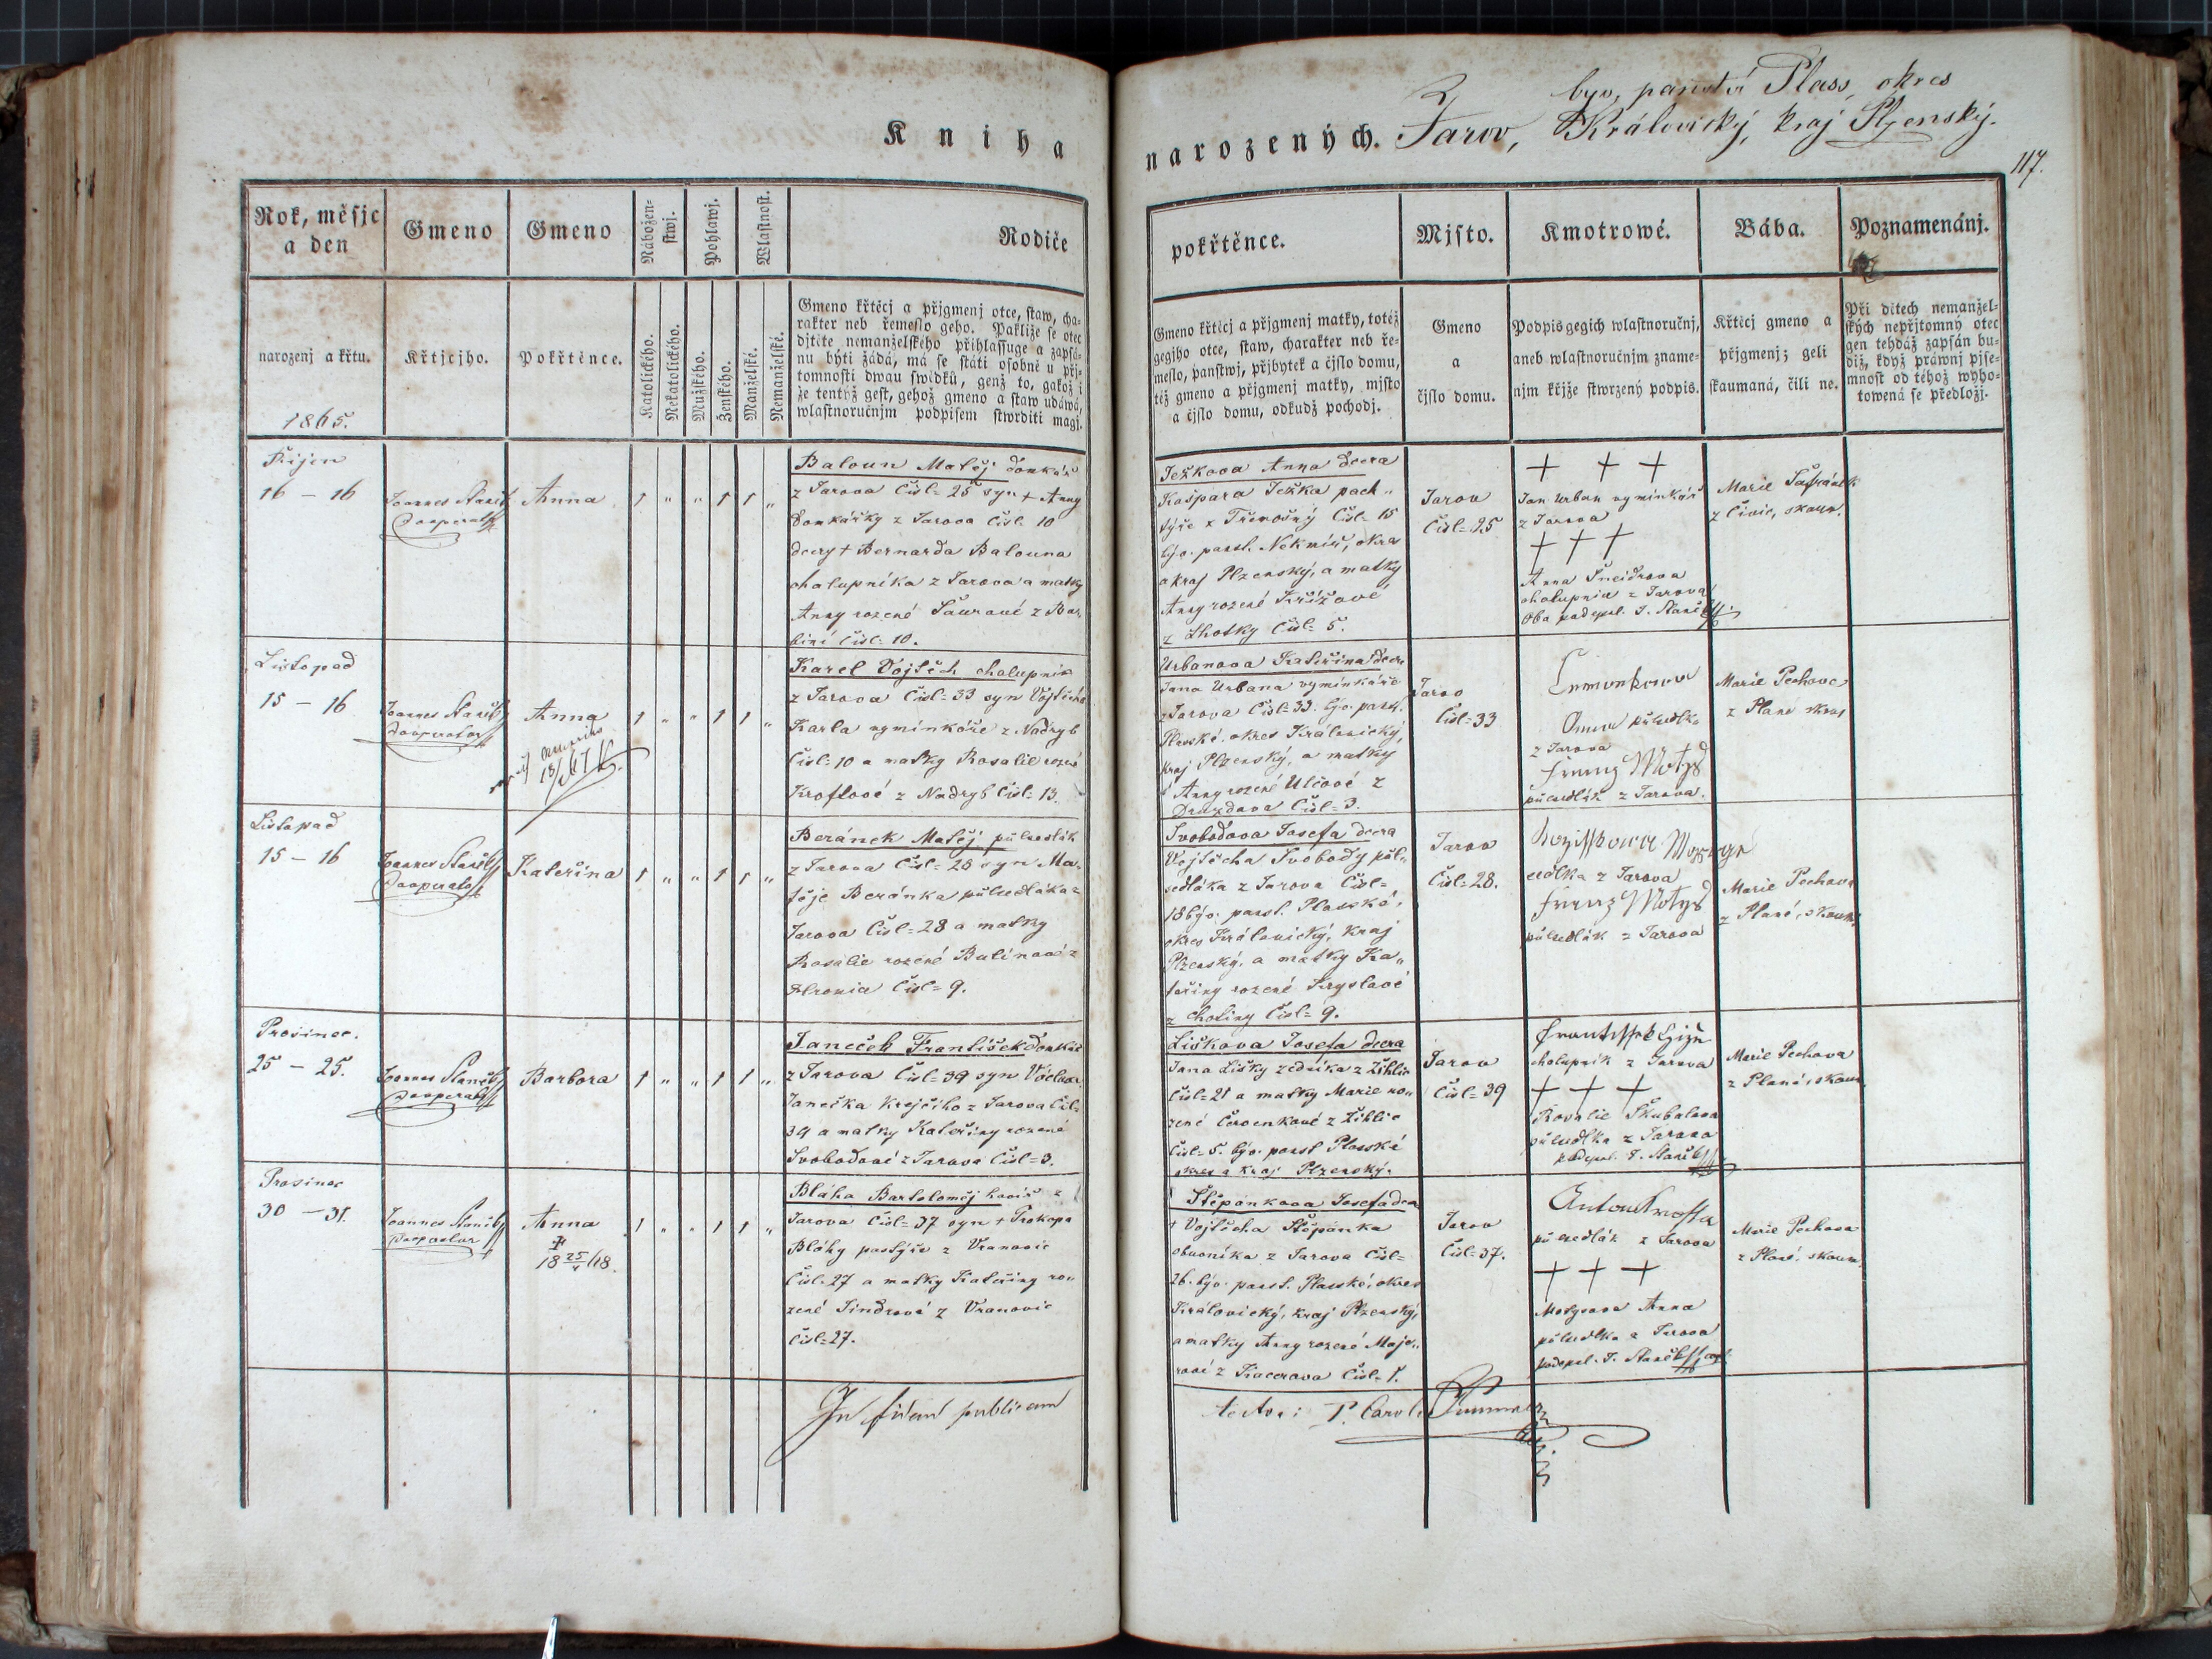 Kniha
narozených. Jarov,
býv. panství Plass, okres
Královický, kraj Plzenský.
117.
Rok, měsjc
a den
Gmeno
Gmeno
Nábožen-
stwj.
Pohlawj.
Wlastnost.
Rodiče
narozenj a křtu.
1865.
Křtjcjho.
Pokřtěnce.
Katolického.
Nekatolického.
Mužského.
Ženského.
Manželské.
Nemanželské.
Gmeno křtěcj a přjgmenj otce, staw, cha-
rakter neb řemeslo geho. Pakliže se otec
djtěte nemanželského přihlassuge a zapsá-
nu býti žádá, má se státi osobně u přj-
tomnosti dwau swědků, genž to, gakož i
že tentýž gest, gehož gmeno a staw udáwá,
wlastnoručnjm podpisem stwrditi magj.
Řijen
16 – 16
Joannes Staněk
Cooperator
Anna
1 " " 1 1 "
Baloun Matěj domkář
z Jarova Čísl= 25 syn + Anny
domkářky z Jarova Čísl. 10
dcery + Bernarda Balouna
chalupníka z Jarova a matky
Anny rozené
Čísl= 10.
Listopad
15 – 16
Joannes Staněk
Cooperator
Anna
1 " " 1 1 "
Karel Vojtěch chalupník
z Jarova Čísl= 33 syn Vojtěcha
Karla vyminkáře z Nadryb
Čísl= 10 a matky Rosalie rozené
Kroftové z Nadryb Čísl= 13.
Listopad
15 – 16
Joannes Staněk
Cooperator
Kateřina
1 " " 1 1 "
Beránek Matěj půlsedlák
z Jarova Čísl= 28 syn Ma-
těje Beránka půlsedláka z
Jarova Čísl= 28 a matky
Rosalie rozené Bulínové z
Čísl= 9.
Prosinec.
25 – 25.
Joannes Staněk
Cooperator
Barbora
1 " " 1 1 "
Janeček František domkář
z Jarova Čísl= 39 syn Václava
Janečka krejčího z Jarova Čísl=
39 a matky Kateřiny rozené
Svobodové z Jarova Čísl= 3.
Prosinec
30 – 31.
Joannes Staněk
Cooperator
Anna
18 25/4 18.
1 " " 1 1 "
Bláha Bartoloměj kovář z
Jarova Čísl= 37 syn + Prokopa
Bláhy pastýře z Vranovic
Čísl. 27 a matky Kateřiny ro-
zené Jindrové z Vranovic
Čísl= 27.
In fidem publicam
pokřtěnce.
Mjsto.
Kmotrowé.
Bába.
Poznamenánj.
Gmeno křtěcj a přjgmenj matky, totéž
gegjho otce, staw, charakter neb ře-
meslo, panstwj, přjbytek a čjslo domu,
též gmeno a přjgmenj matky, mjsto
a čjslo domu, odkudž pochodj.
Gmeno
a
čjslo domu.
Podpis gegich wlastnoručnj,
aneb wlastnoručnjm zname-
njm křjže stwrzený podpis.
Křtěcj gmeno a
přjgmenj; geli
skaumaná, čili ne.
Při djtech nemanžel-
ských nepřjtomný otec
gen tehdáž zapsán bu-
diž, když práwnj pjse-
mnost od téhož wyho-
towená se předložj.
Ježkova Anna dcera
Kašpara Ježka pach-
týře z Třemošný Čísl= 15
býv. panst. Nekmíř, okres
a kraj Plzenský, a matky
Anny rozené Křížové
z Lhotky Čísl= 5.
Jarov
Čísl= 25
+ + +
Jan Urban vyminkář
z Jarova
+ + +
Anna Šneidrova
chalupnice z Jarova
Oba podepsl. J. Staněk
Marie Šafránek
z Čivic, skoum.
Urbanova Kateřina dcera
Jana Urbana vyminkáře
z Jarova Čísl= 33. býv. panst.
Plasské, okres Královický,
kraj Plzenský, a matky
Anny rozené Ulčové z
Druzdova Čísl= 3.
Jarov
Čísl= 33
Anna půlsedlka
z Jarova
Franz Motys
půlsedlák z Jarova.
Marie Pechova
z Plané skou
Svobodova Josefa dcera
Vojtěcha Svobody půl-
sedláka z Jarova Čísl=
18 býv. panst. Plasské,
okres Královický, kraj
Plzenský, a matky Ka-
teřiny rozené Kryslové
z Chotiny Čísl= 9.
Jarov
Čísl= 28.
sedlka z Jarova
Franz Motys
půlsedlák z Jarova
Marie Pechova
z Plané, skoum.
Liškova Josefa dcera
Jana Lišky zedníka z Žihlic
Čísl= 21 a matky Marie ro-
zené Červenkové z Žihlic
Čísl= 5. býv. panst Plasské
okres a kraj Plzenský.
Jarov
Čísl= 39
chalupník z Jarova
+ + +
Rosalie Škubalova
půlsedlka z Jarova
podepsl. J. Staněk
Marie Pechova
z Plané, skoum
Štěpánkova Josefa dcera
+ Vojtěcha Štěpánka
obuvníka z Jarova Čísl=
26. býv. panst. Plasské, okres
Královický, kraj Plzenský,
a matky Anny rozené Maje-
rové z Kacerova Čísl= 1.
Jarov
Čísl= 37.
Anton Krofta
půlsedlák z Jarova
+ + +
Motysova Anna
půlsedlka z Jarova
podepsl. J. Staněk
Marie Pechova
z Plané, skoum.
P. Carol